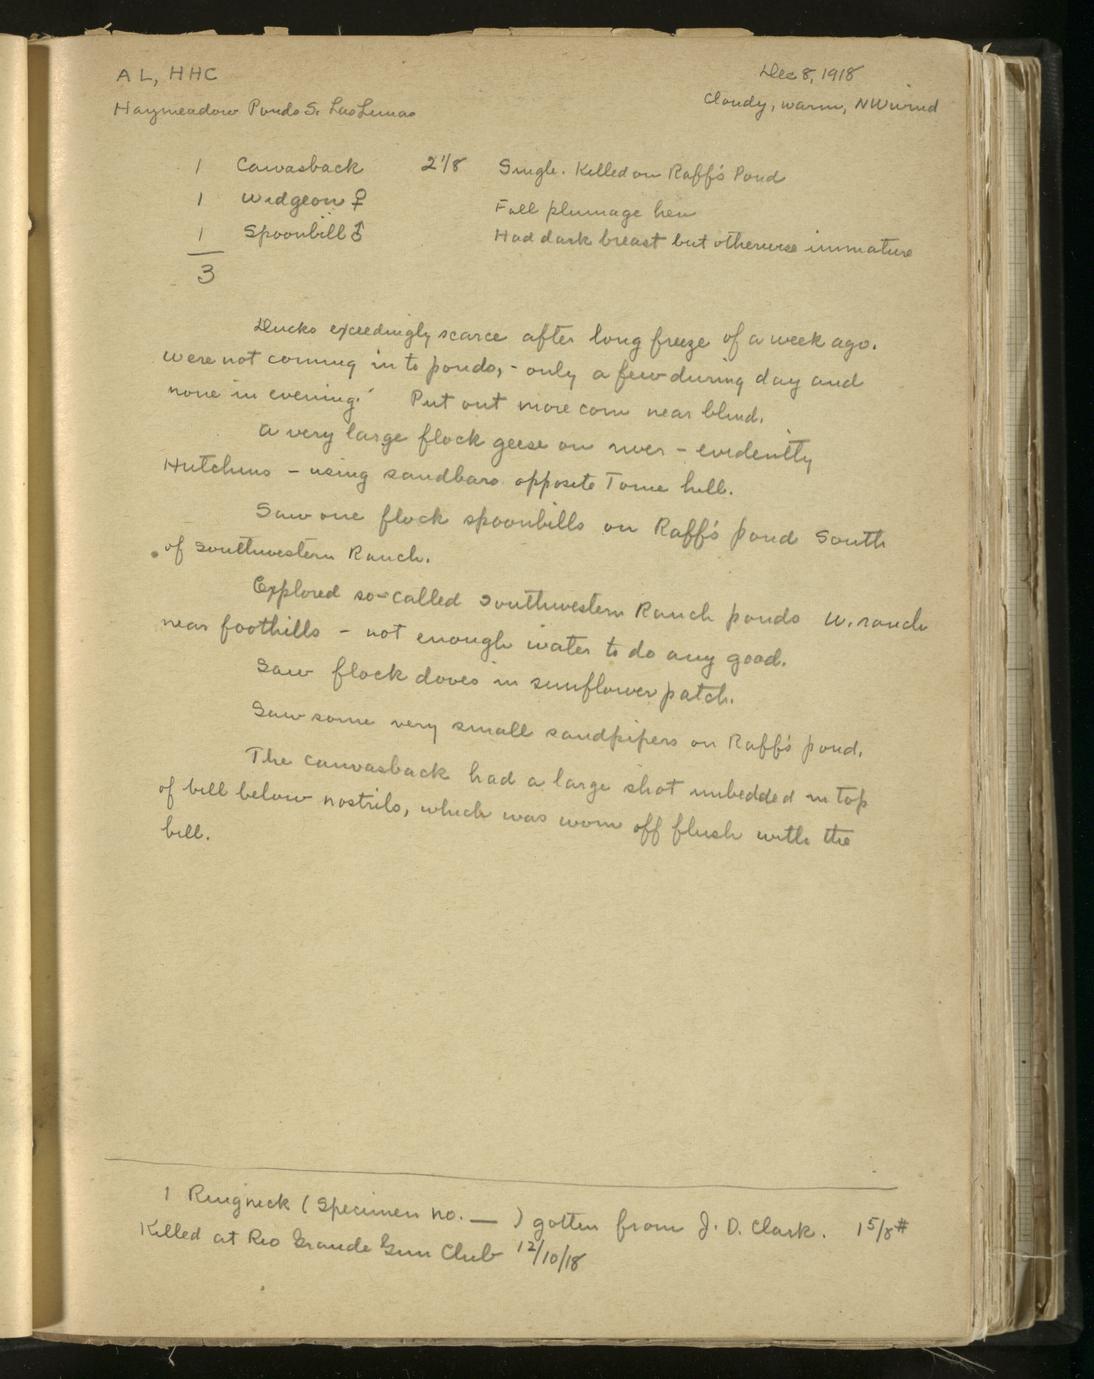 AL, HHC
Dec 8, 1918
Haymeadow Ponds S. Los Lunas
Cloudy, warm, NW wind
1 Canvasback 2 1/8 Single. Killed on Raff's Pond
1 Widgeon ♀ Fall plumage hen
1 Spoonbill ♂ Had dark breast but otherwise immature
3
Ducks exceedingly scarce after long freeze of a week ago.
Were not coming in to ponds, - only a few during day and
none in evening. Put out more corn near blind.
A very large flock geese on river - evidently
Hutchins - using sandbars opposite Tome hill.
Saw one flock spoonbills on Raff's pond South
of Southwestern Ranch.
Explored so-called Southwestern Ranch ponds W. ranch
near foothills - not enough water to do any good.
Saw flock doves in sunflower patch.
Saw some very small sandpipers on Raff's pond.
The canvasback had a large shot imbedded in top
of bill below nostrils, which was worn off flush with the
bill.
1 Ringneck (Specimen no. — ) gotten from J. D. Clark. 1 5/8 #
Killed at Rio Grande Gun Club 12/10/18